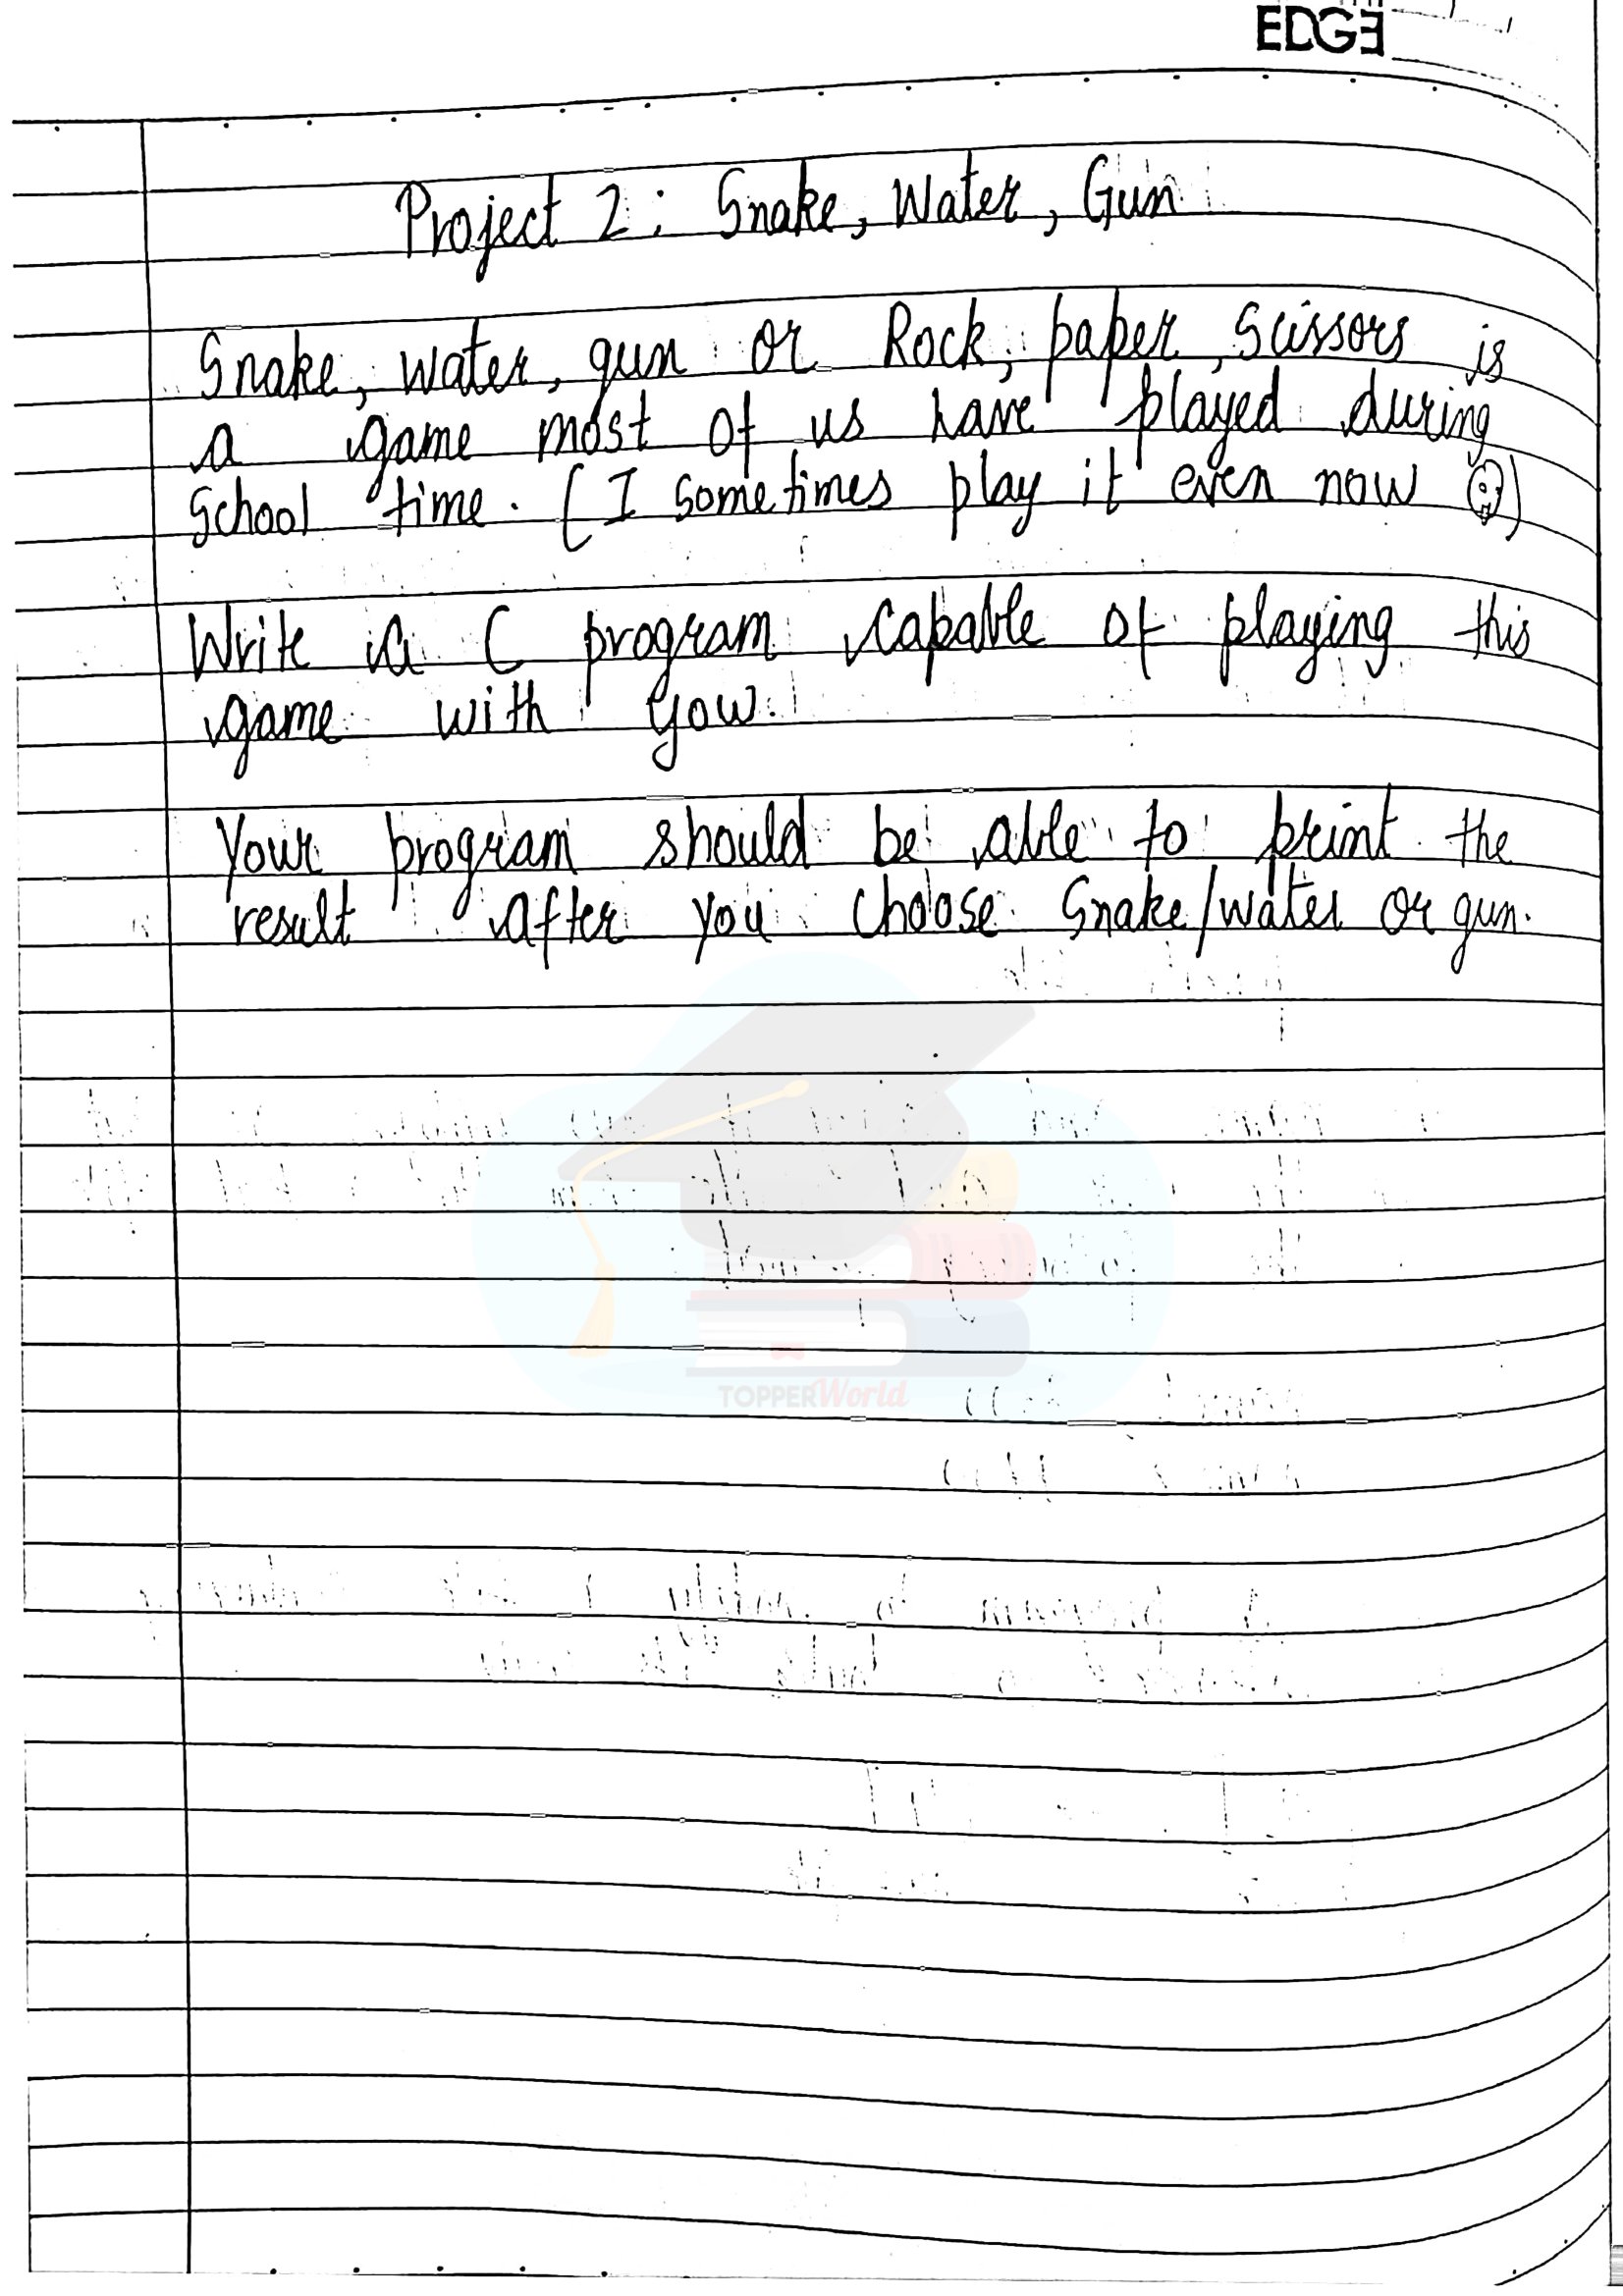 EDGE
Project 2: Snake, Water, Gun
Snake, water, gun or Rock, paper, scissors is
a game most of us have played during
School time. (I sometimes play it even now 🙂)
Write a C program capable of playing this
game with you.
Your program should be able to print the
result after you choose Snake/water or gun.
TOPPERWorld